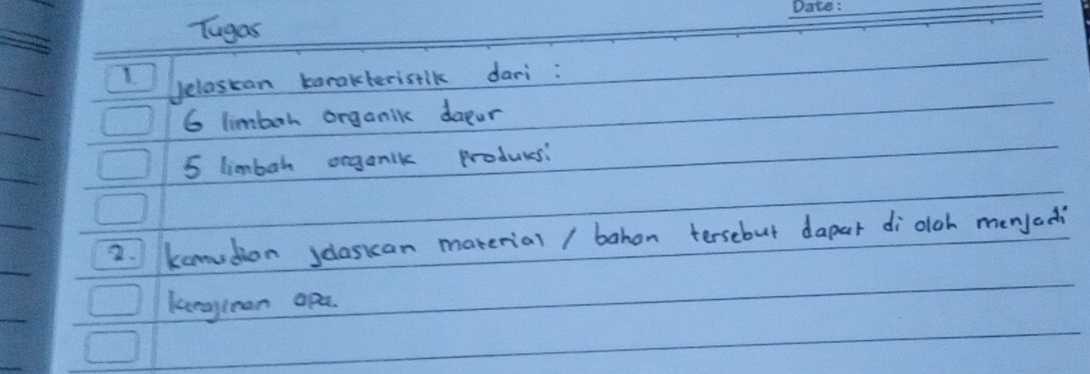 Date:
Tugas
1. Jelaskan karakteristik dari :
6 limbah organik dapur
5 limbah organik produksi
2. kemudian jelaskan material / bahan tersebut dapat di olah menjadi
kerajinan apa.